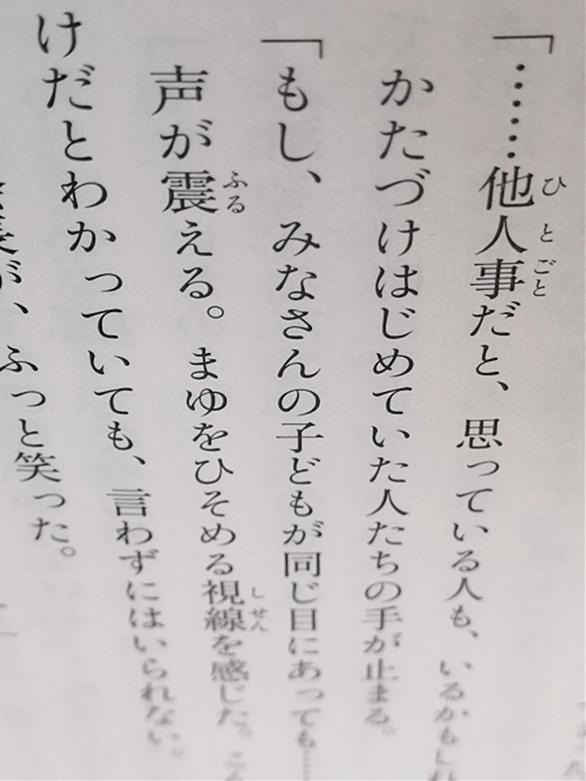 「……他人事だと、思っている人も、いるかもしれ
かたづけはじめていた人たちの手が止まる。
「もし、みなさんの子どもが同じ目にあっても……
声が震える。まゆをひそめる視線を感じた。こん
けだとわかっていても、言わずにはいられない。
が、ふっと笑った。